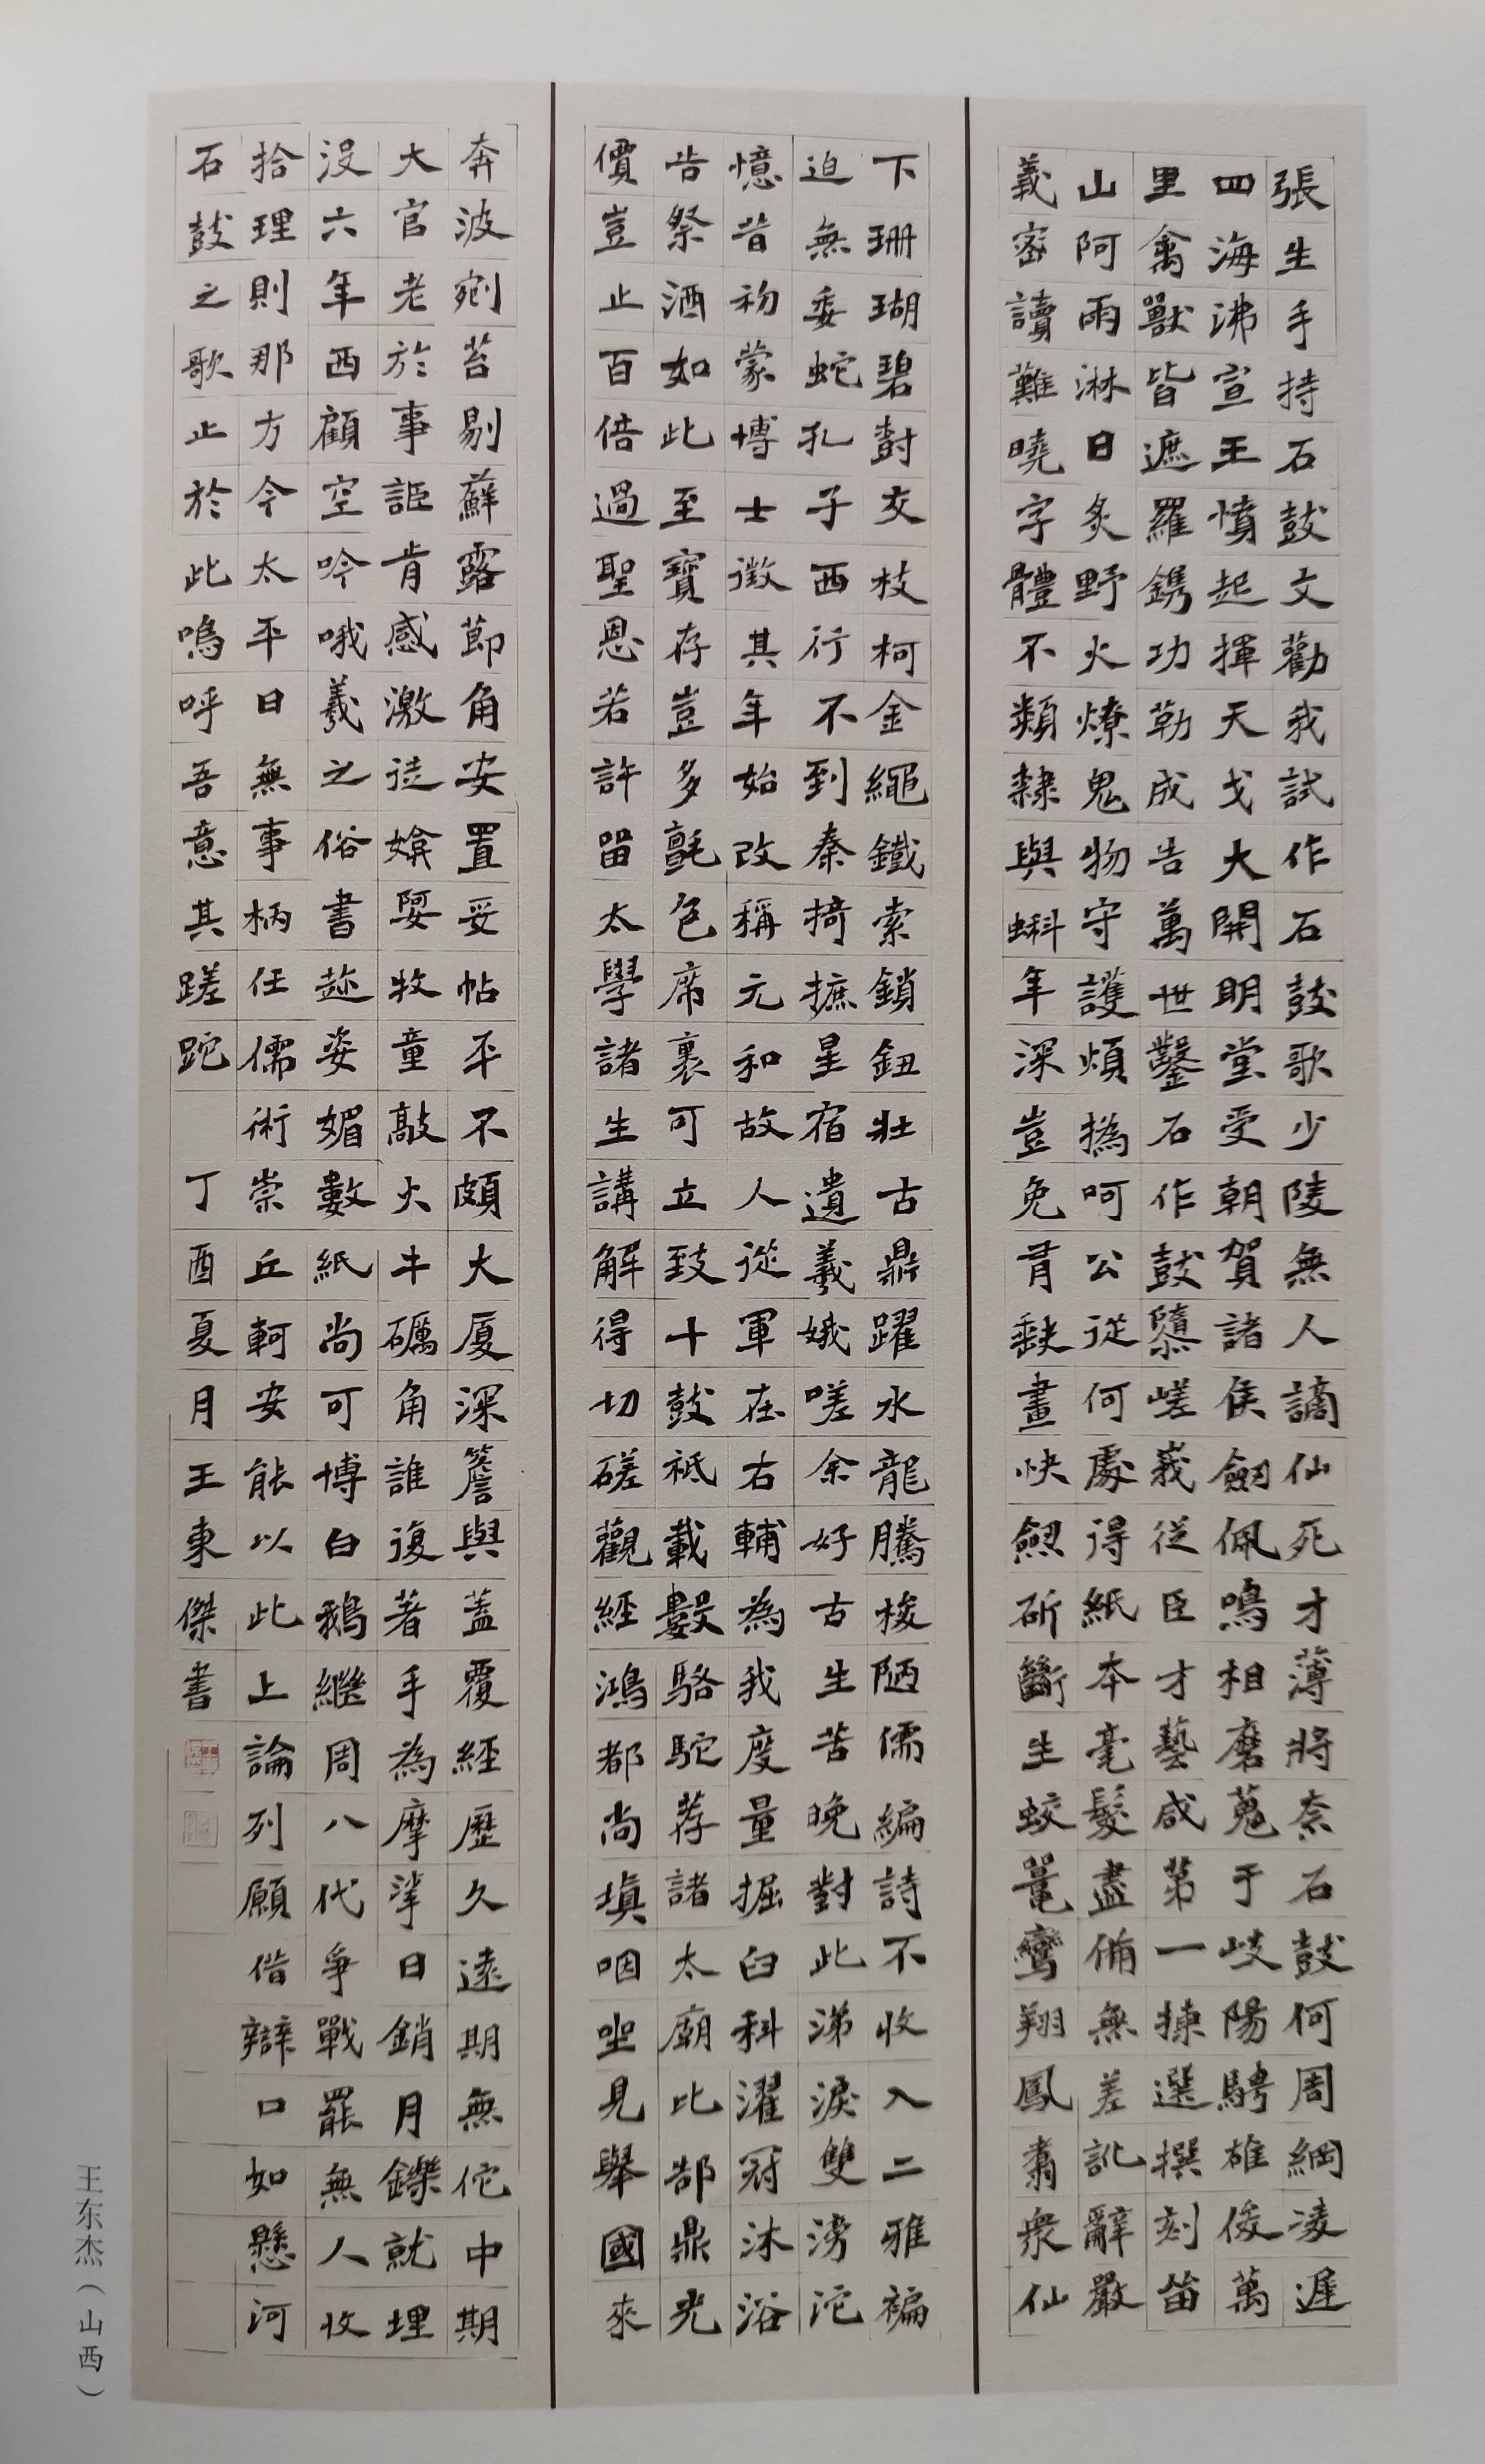 張生手持石鼓文勸我試作石鼓歌少陵無人謫仙死才薄將奈石鼓何周綱凌遲
四海沸宣王憤起揮天戈大開明堂受朝賀諸侯劒佩鳴相磨蒐于岐陽騁雄俊萬
里禽獸皆遮羅鐫功勒成告萬世鑿石作鼓隳嵯峩從臣才藝咸第一揀選撰刻留
山阿雨淋日炙野火燎鬼物守護煩撝呵公從何處得紙本毫髮盡備無差訛辭嚴
義密讀難曉字體不類隸與蝌年深豈免有缺畫快劒斫斷生蛟鼉鸞翔鳳翥衆仙
下珊瑚碧樹交枝柯金繩鐵索鎖鈕壯古鼎躍水龍騰梭陋儒編詩不收入二雅褊
迫無委蛇孔子西行不到秦掎摭星宿遺羲娥嗟余好古生苦晚對此涕淚雙滂沱
憶昔初蒙博士徵其年始改稱元和故人從軍在右輔為我度量掘臼科濯冠沐浴
告祭酒如此至寶存豈多氈包席裹可立致十鼓祗載數駱駝荐諸太廟比郜鼎光
價豈止百倍過聖恩若許留太學諸生講解得切磋觀經鴻都尚填咽坐見舉國來
奔波剜苔剔蘚露節角安置妥帖平不頗大厦深簷與蓋覆經歷久遠期無佗中期
大官老於事詎肯感激徒媕婀牧童敲火牛礪角誰復著手為摩挲日銷月鑠就埋
沒六年西顧空吟哦羲之俗書趂姿媚數紙尚可博白鵝繼周八代爭戰罷無人收
拾理則那方今太平日無事柄任儒術崇丘軻安能以此上論列願借辯口如懸河
石鼓之歌止於此嗚呼吾意其蹉跎 丁酉夏月王東傑書
王东杰（山西）